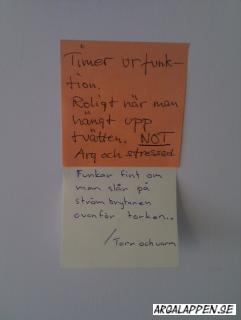 Timer ur funk-
tion.
Roligt när man
hängt upp
tvätten. NOT
Arg och stressad
Funkar fint om
man slår på
strömbrytaren
ovanför torken..
/Torr och varm
ARGALAPPEN.SE